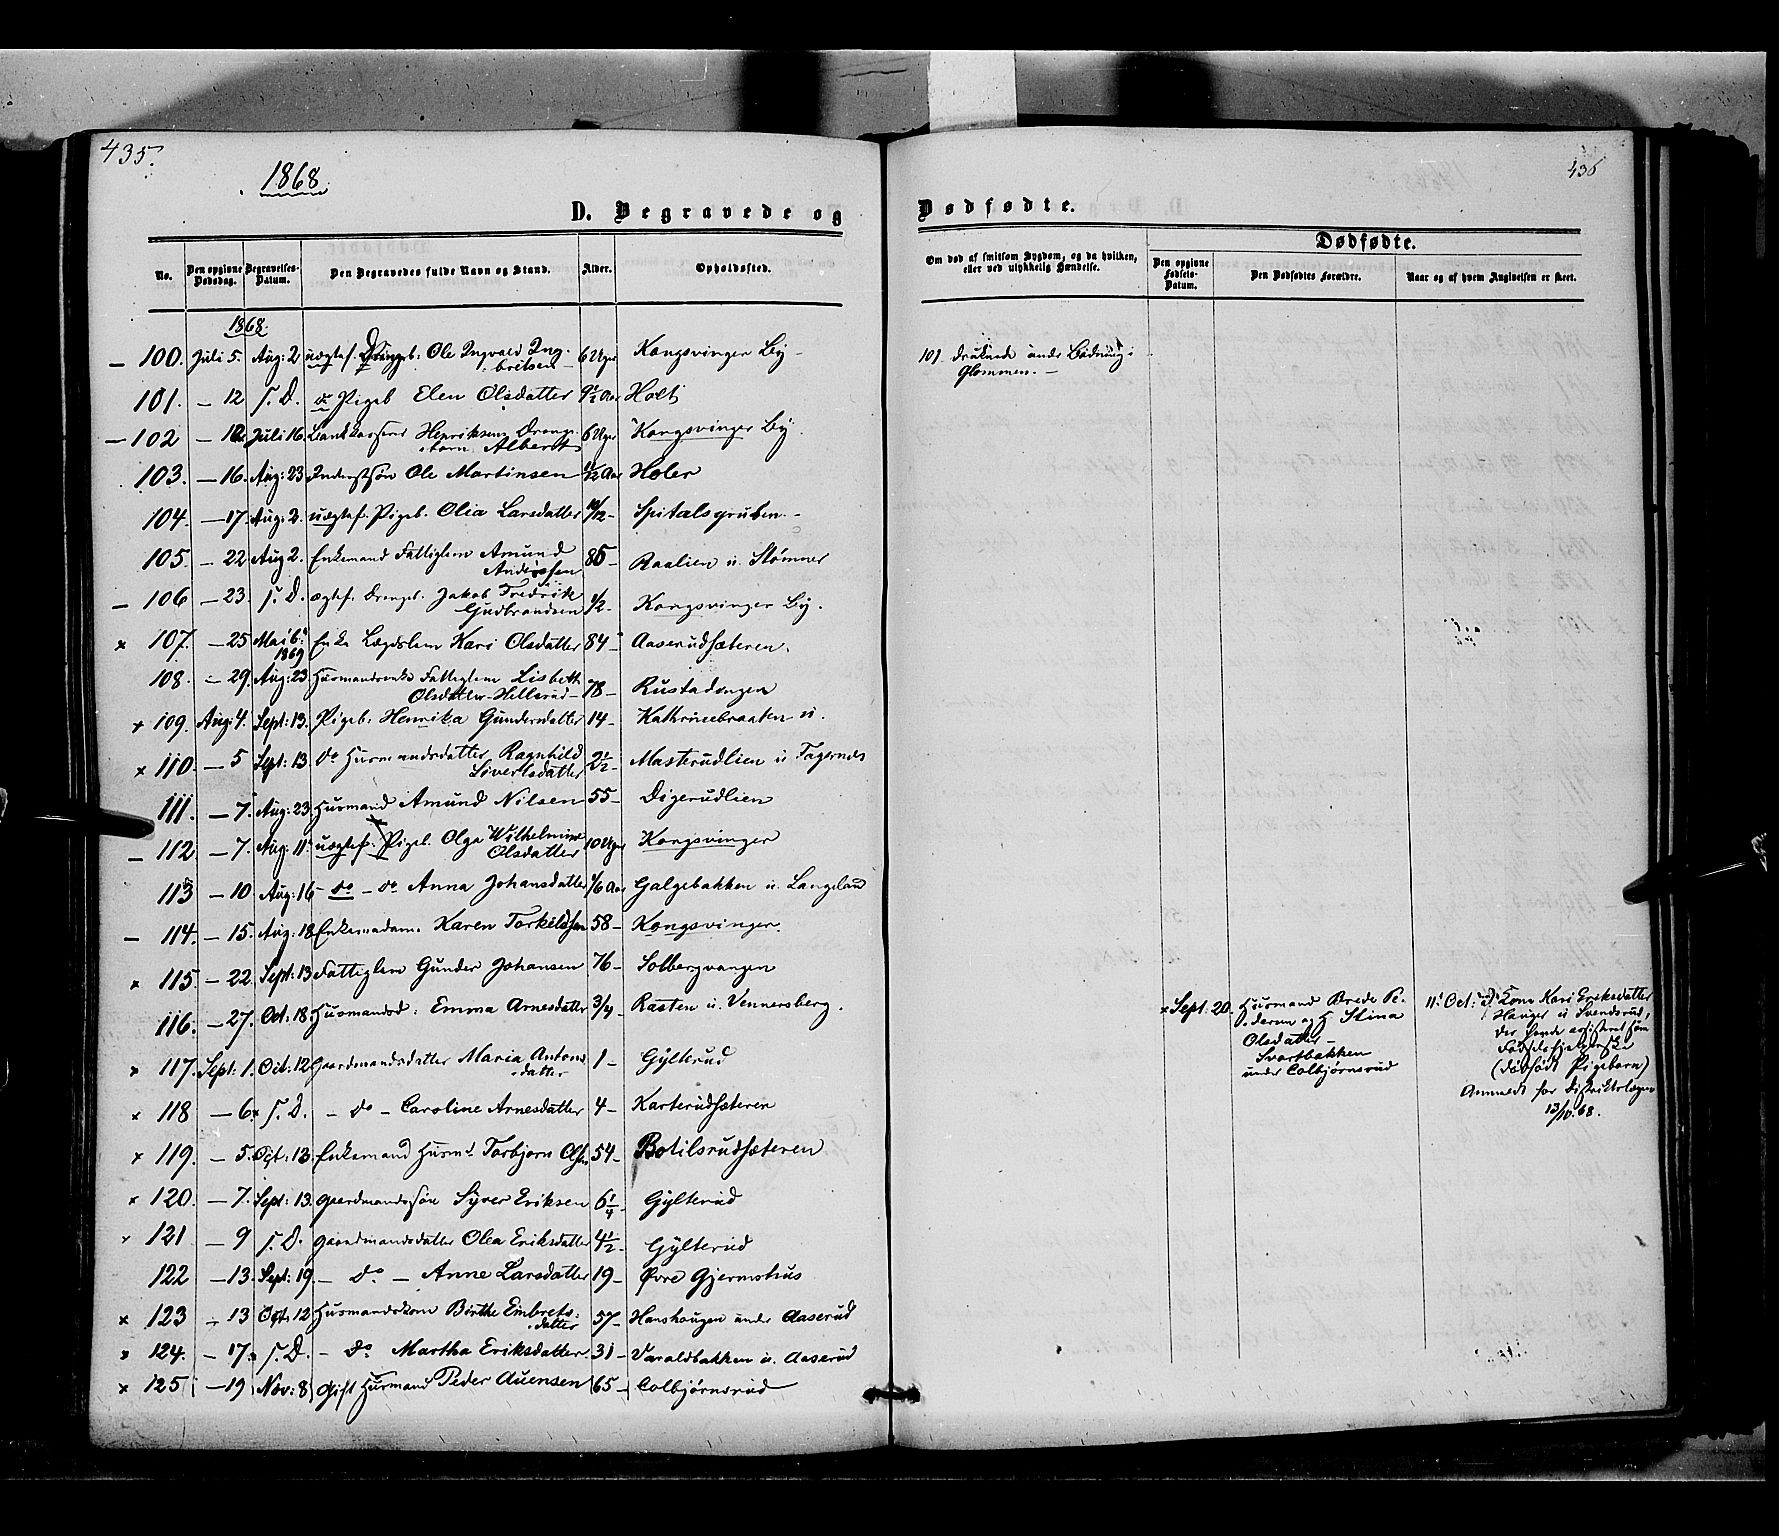 435.
436
1868.
D. Begravede og
Dødfødte.
No.
Den opgivne Dødsdag.
Begravelses-Datum.
Den Begravedes fulde Navn og Stand.
Alder.
Opholdssted.
Om død af smitsom Sygdom, og da hvilken,
eller ved ulykkelig Hændelse.
Dødfødte.
Den opgivne Fødsels-Datum.
Den Dødfødtes Forældre.
Naar og af hvem Angivelsen er skeet.
1868.
100. Juli 5. Aug: 2 uægtef. Drengeb: Ole Ingvald Ing-
bretsen 6 Uger Kongsvinger By
101. — 12 s. D. do Pigeb Elen Olsdatter 9½ Aar Holt
102 — 12 Juli 16 Henriksens Drenge-
barn Albert 6 Uger Kongsvinger By.
103. — 16. Aug: 23 Inderstsøn Ole Martinsen Aar Holer
104. — 17. Aug: 2. uægtef. Pigeb. Olia Larsdatter 10/12 – Spitalsgruben. –
105. — 22 Aug 2. Enkemand Fattiglem Amund
Andersen 85 – Raalien u. Stømner
106 — 23. s. D. ægtef. Drengeb. Jakob Fredrik
Gudbrandsen ½ – Kongsvinger By.
107. — 25 Mai 6.
1869 Enke Lægdslem Kari Olsdatter 84 Aaserudsæteren.
108. — 29. Aug: 23 Husmandsenke Fattiglem Lisbeth
Olsdatter Hellerud 78 – Rustadengen
109. Aug: 4. Sept: 13. Pigeb: Henrika Gundersdatter 14 – Kathrinebraaten u.
110. — 5 Sept: 13 do Husmandsdatter Ragnhild
Sivertsdatter 2½ – Masterudlien u Fagernes
111. — 7. Aug: 23 Husmand Amund Nilsen 55 – Digerudlien
112 — 7. Aug: 11 uægtef. Pigeb. Olga Wilhelmine
Olsdatter 10 Uger Kongsvinger
113 — 10 Aug: 16 – do – do Anna Johansdatter 1/6 Aar Galgebakken u. Langeland
114. — 15. Aug: 18 Enkemadam. Karen Torkildsen 58 – Kongsvinger.
115 — 22 Sept: 13 Fattiglem Gunder Johansen 76 – Solbergvangen
116. — 27. Oct: 18 Husmandsd: Emma Arnesdatter 3/4 Rasten u. Vennersberg.
117. Sept: 1. Oct: 12 Gaardmandsdatter Maria Antons-
datter 1 – Gylterud
118 — 6. s. D. – do – Caroline Arnesdatter 4 – Karterudsæteren
119. — 5. Oct: 13. Enkemand Husmd. Torbjørn Olsen 54 – Botilsrudsæteren
120. — 7. Sept: 13. Gaardmandssøn Syver Eriksen 6¼ – Gylterud
121 — 9 s. D. Gaardmandsdatter Olea Eriksdatter 4½ – Gylterud
122 — 13. Sept: 19 – do – Anne Larsdatter 19 – Øvre Gjermshus
123 — 13 Oct: 12 Husmandskone Birthe Embrets-
datter 57 – Hanshaugen under Aaserud
124. — 17. s. D. – do Martha Eriksdatter 31 – Varaldbakken u. Aaserud
125 — 19 Nov: 8 Gift Husmand Peder Auensen 65 – Colbjørnsrud
101 druknede under Badning i
Glommen. –
Sept: 20
Husmand Brede Pe-
dersen og H Stina
Olsdatter –
Svartbakken
under Colbjørnsrud
11. Oct: af Kone Kari Eriksdatter
Hauger u Svendsrud,
der havde assisteret som
Fødselshjælperske
(dødfødt Pigebarn)
Anmeldt for Distriktslægen
13/10. 68.